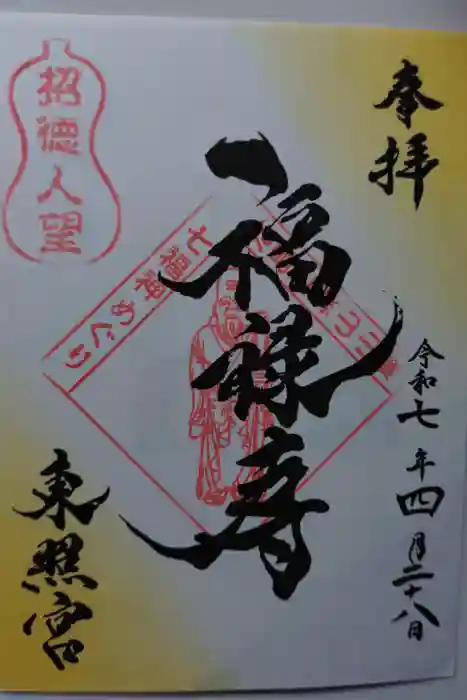 奉拝
令和七年四月二十八日
福禄寿
招徳人望
七福神めぐり
東照宮